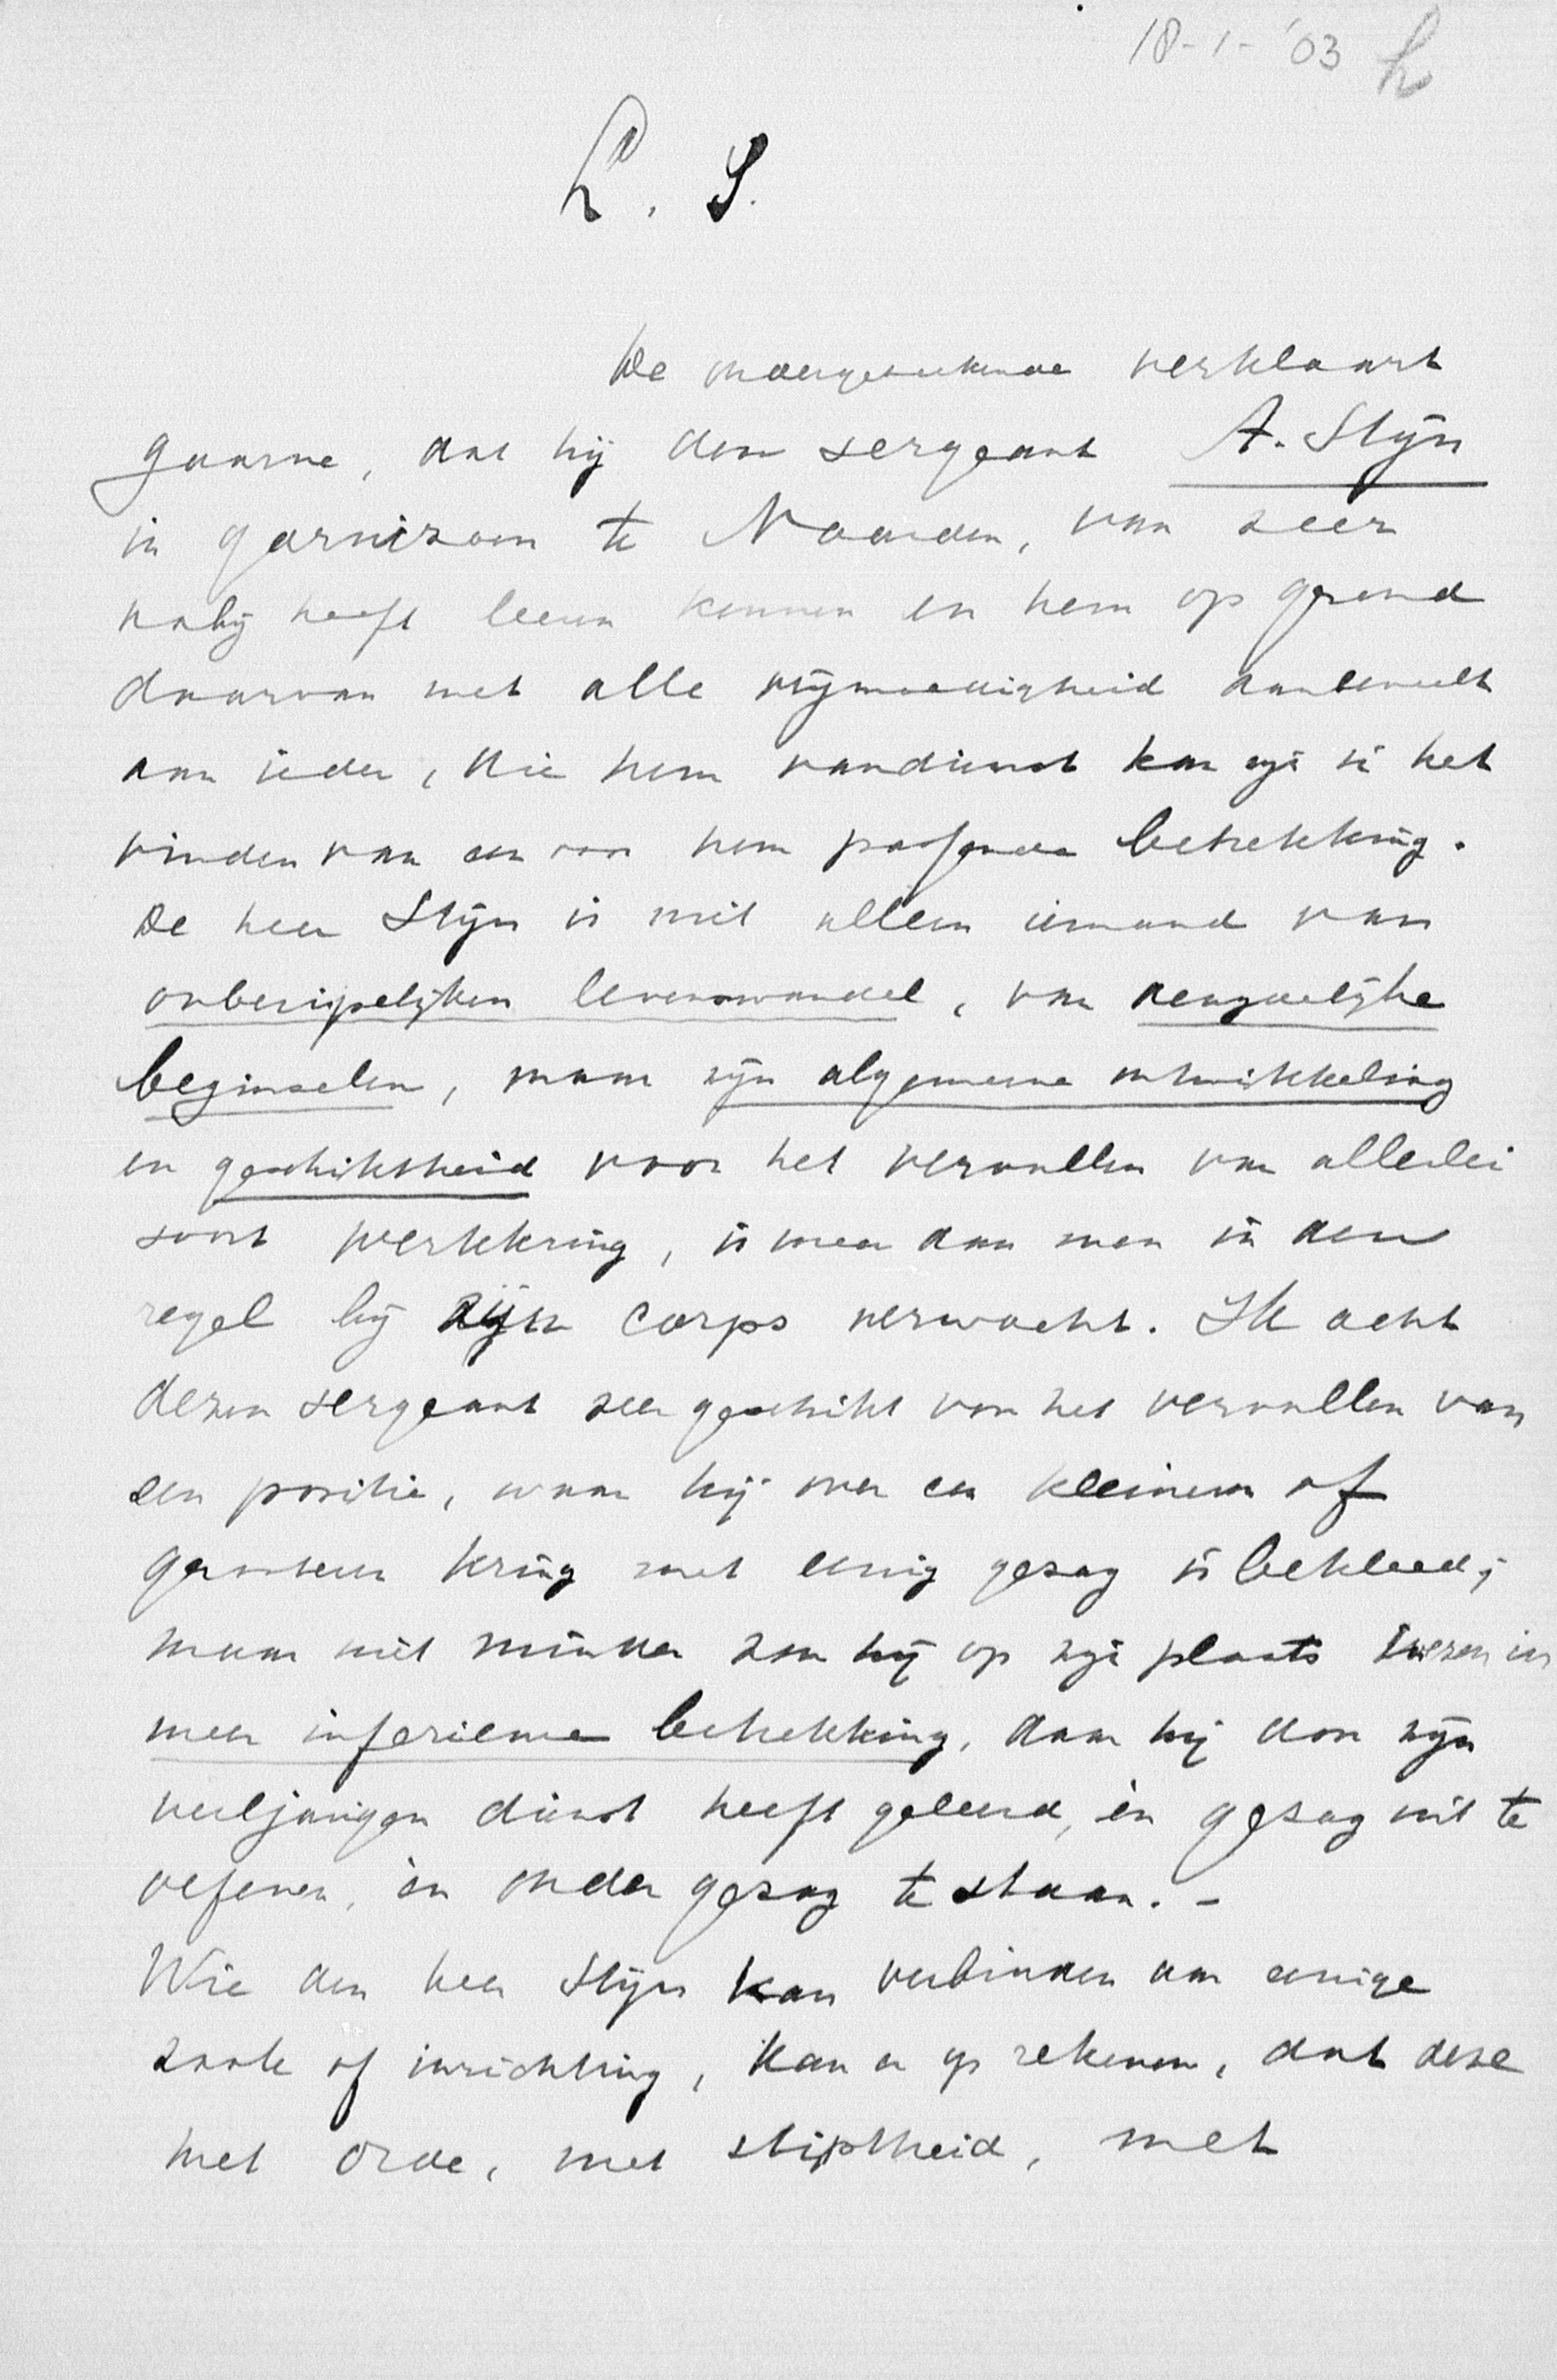 18-1-'03 h
L. S.
De ondergeteekende verklaart
gaarne, dat hij den sergeant A. Stijn
in garnizoen te Naarden, van zeer
nabij heeft leeren kennen en hem op grond
daarvan met alle vrijmoedigheid aanbeveelt
aan ieder, die hem van dienst kan zijn in het
vinden van een voor hem passende betrekking.
De heer Stijn is niet alleen iemand van
onberispelijken levenswandel, van deugdelijke
beginselen, maar zijn algemeene ontwikkeling
en geschiktheid voor het vervullen van allerlei
soort werkkring, is meer dan men in den
regel bij zijn corps verwacht. Ik acht
dezen sergeant zeer geschikt voor het vervullen van
een positie, waar hij over een kleineren of
grooteren kring met eenig gezag is bekleed;
maar niet minder zou hij op zijn plaats wezen in
meer inferieure betrekking, daar hij door zijn
veeljarigen dienst heeft geleerd, èn gezag uit te
oefenen, èn onder gezag te staan. -
Wie den heer Stijn kan verbinden aan eenige
zaak of inrichting, kan er op rekenen, dat deze
met orde, met stiptheid, met